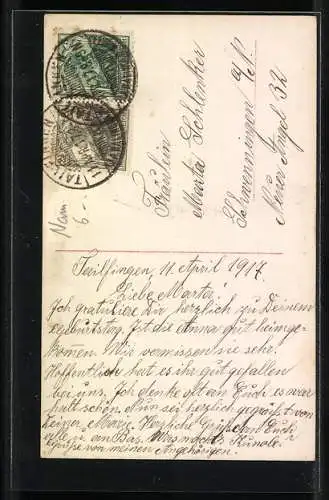 Fräulein
Marta Schlenker
Schwenningen a/N
Neuer Angel 32
Nam
6.-
Tailfingen, 11 April 1917.
Liebe Marta!
Ich gratuliere Dir herzlich zu Deinem
Geburtstag. Ist die Anna gut heimge-
kommen. Wir vermissen sie sehr.
Hoffentlich hat es ihr gut gefallen
bei uns. Ich denke oft an Euch es war
halt schön. Nun sei herzlich gegrüsst von
Deiner Marg. Herzliche Grüsse an Euch
allen an Bas. Was macht Künole
Grüsse von meinen Angehörigen.